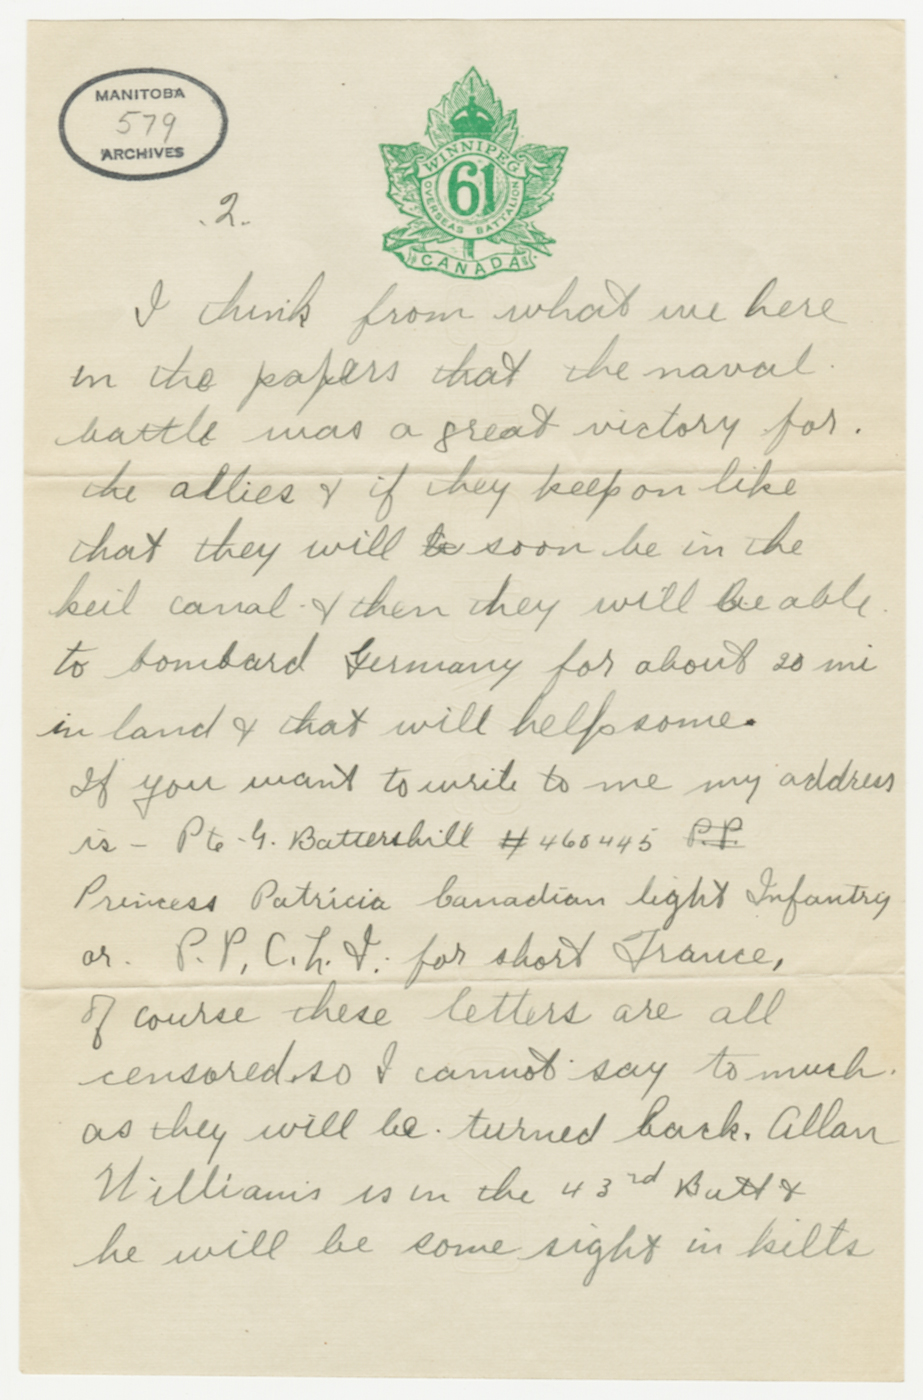 MANITOBA
579
ARCHIVES
WINNIPEG
61
OVERSEAS BATTALION
CANADA
.2.
I think from what we here
in the papers that the naval
battle was a great victory for.
the allies & if they keep on like
that they will be soon be in the
keil canal & then they will be able
to bombard Germany for about 20 mi
in land & that will help some.
If you want to write to me my address
is - Pte - G. Battershill # 460445 P.P.
Princess Patricia Canadian light Infantry
or. P.P.C.L.I. for short France,
of course these letters are all
censored so I cannot say to much.
as they will be turned back. Allan
Williams is in the 43rd Batt &
he will be some sight in kilts